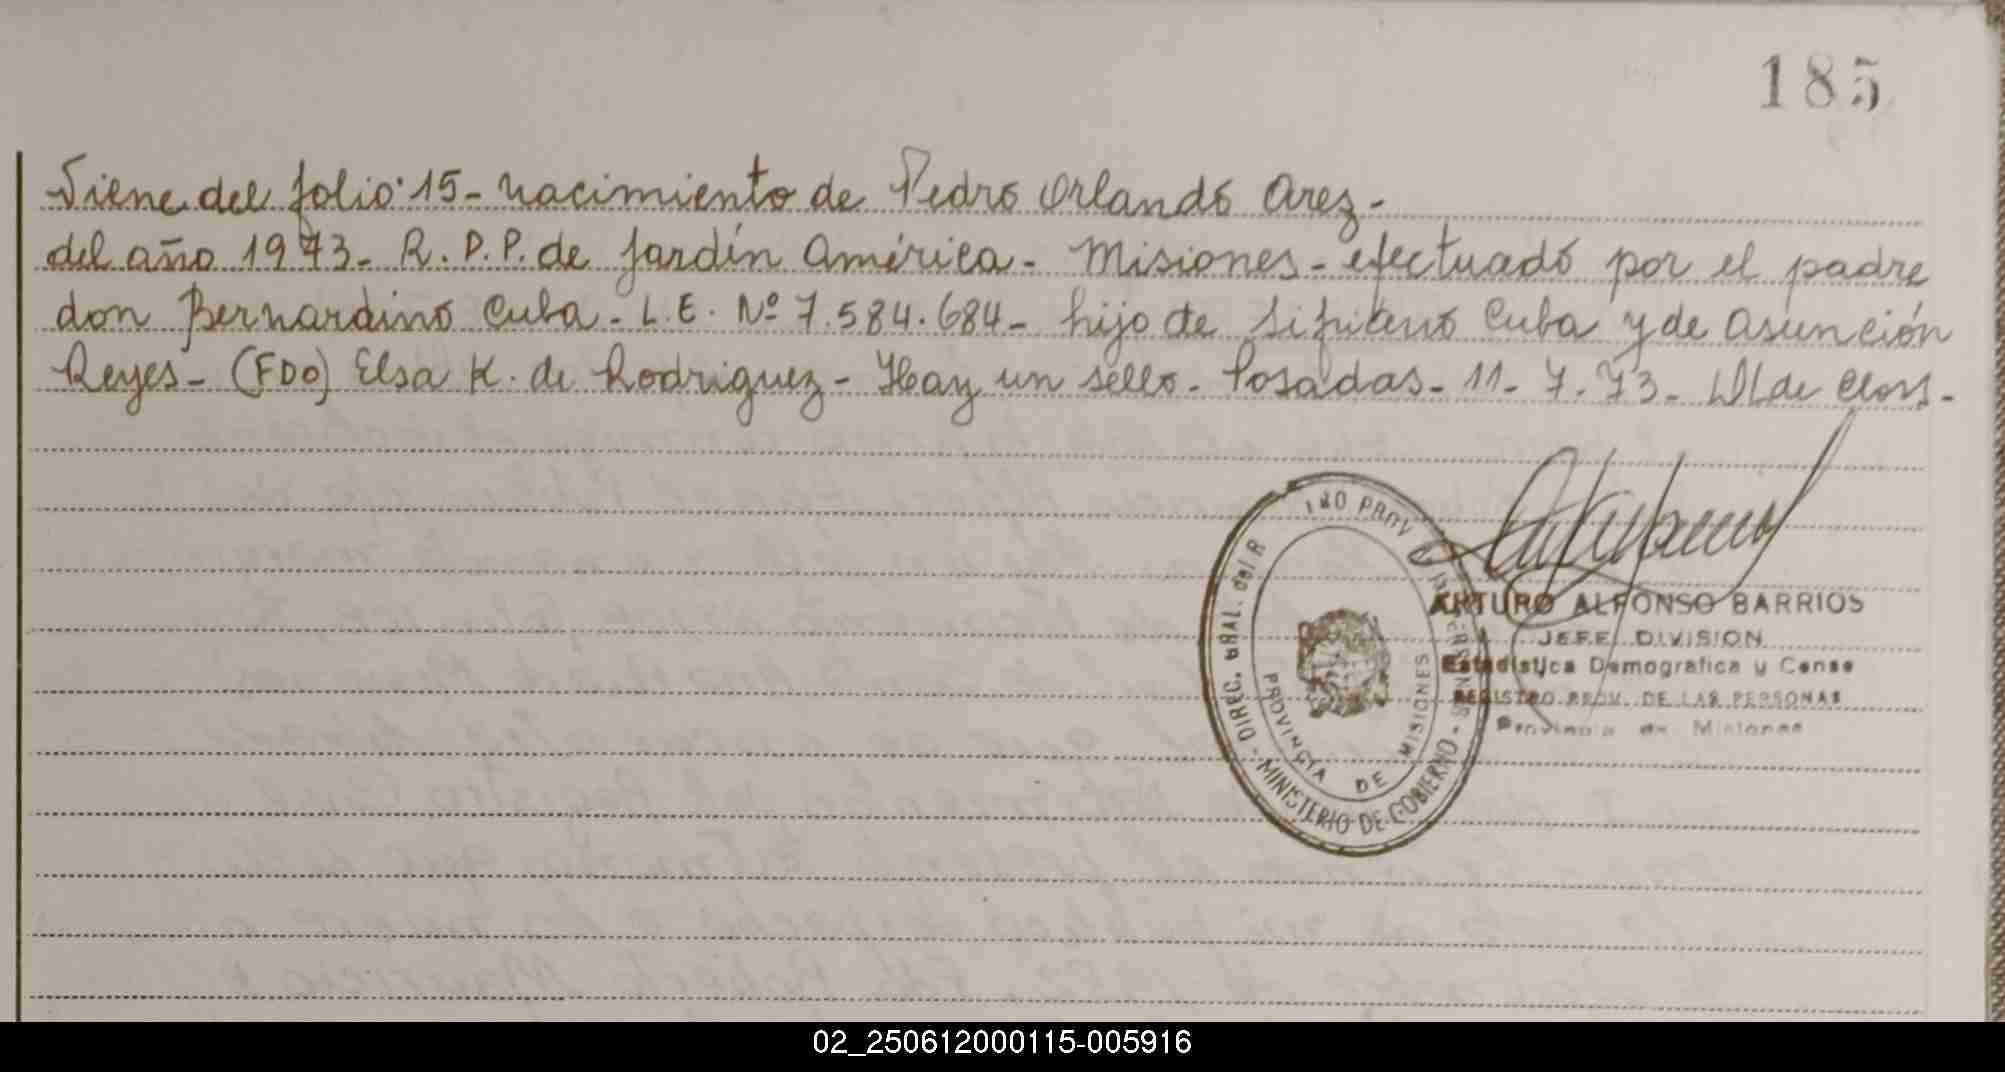 185
Viene del folio 15- nacimiento de Pedro Orlando Arez-
del año 1973- R.P.P. de Jardín América- Misiones- efectuado por el padre
don Bernardino Cuba- L.E. Nº 7.584.684- hijo de Cuba y de Asunción
Reyes- (FDO) Elsa K. de Rodriguez- Hay un sello- Posadas- 11-7-73-
DIREC. GRAL. del R PROV PERSONAS
PROVINCIA DE MISIONES
- MINISTERIO DE GOBIERNO -
ARTURO ALFONSO BARRIOS
JEFE DIVISION
Estadistica Demografica y Censo
REGISTRO PROV. DE LAS PERSONAS
Provincia de Misiones
02_250612000115-005916